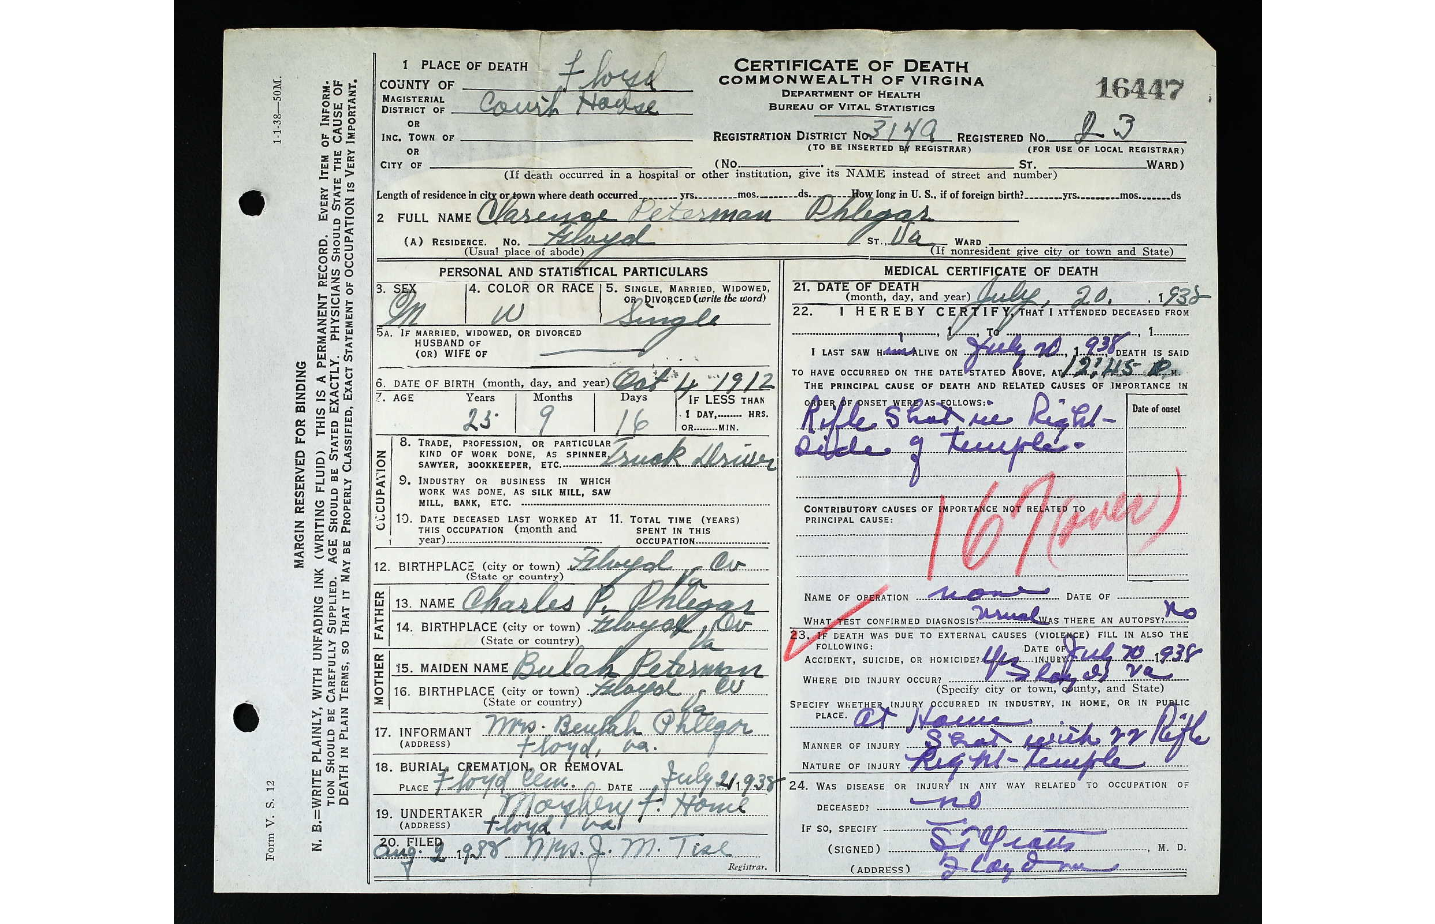 1-1-38—50M.
Form V. S. 12
MARGIN RESERVED FOR BINDING
N. B.=WRITE PLAINLY, WITH UNFADING INK (WRITING FLUID) THIS IS A PERMANENT RECORD. EVERY ITEM OF INFORM.
TION SHOULD BE CAREFULLY SUPPLIED. AGE SHOULD BE STATED EXACTLY. PHYSICIANS SHOULD STATE THE CAUSE OF
DEATH IN PLAIN TERMS, SO THAT IT MAY BE PROPERLY CLASSIFIED. EXACT STATEMENT OF OCCUPATION IS VERY IMPORTANT.
1 PLACE OF DEATH
COUNTY OF Floyd
MAGISTERIAL
DISTRICT OF Court House
OR
INC. TOWN OF
OR
CITY OF
CERTIFICATE OF DEATH
COMMONWEALTH OF VIRGINIA
DEPARTMENT OF HEALTH
BUREAU OF VITAL STATISTICS
16447
REGISTRATION DISTRICT NO. 3149 REGISTERED NO. 23
(TO BE INSERTED BY REGISTRAR) (FOR USE OF LOCAL REGISTRAR)
(No. St. WARD)
(If death occurred in a hospital or other institution, give its NAME instead of street and number)
Length of residence in city or town where death occurred yrs. mos. ds. How long in U. S., if of foreign birth? yrs. mos. ds
2 FULL NAME Clarence Peterman Phlegar
(A) RESIDENCE. No. Floyd ST. Va WARD
(Usual place of abode) (If nonresident give city or town and State)
PERSONAL AND STATISTICAL PARTICULARS
3. SEX M
4. COLOR OR RACE W
5. SINGLE, MARRIED, WIDOWED,
OR DIVORCED (write the word)
Single
5A. IF MARRIED, WIDOWED, OR DIVORCED
HUSBAND OF
(OR) WIFE OF
6. DATE OF BIRTH (month, day, and year) Oct 4 1912
7. AGE Years Months Days IF LESS THAN
25 9 16 1 DAY, HRS.
OR MIN.
OCCUPATION
8. TRADE, PROFESSION, OR PARTICULAR
KIND OF WORK DONE, AS SPINNER,
SAWYER, BOOKKEEPER, ETC. Truck Driver
9. INDUSTRY OR BUSINESS IN WHICH
WORK WAS DONE, AS SILK MILL, SAW
MILL, BANK, ETC.
10. DATE DECEASED LAST WORKED AT
THIS OCCUPATION (month and
year)
11. TOTAL TIME (YEARS)
SPENT IN THIS
OCCUPATION
12. BIRTHPLACE (city or town) Floyd Co
(State or country) Va
FATHER
13. NAME Charles P. Phlegar
14. BIRTHPLACE (city or town) Floyd Co
(State or country) Va
MOTHER
15. MAIDEN NAME Bulah Peterman
16. BIRTHPLACE (city or town) Floyd Co
(State or country) Va
17. INFORMANT Mrs. Beulah Phlegar
(ADDRESS) Floyd, Va.
18. BURIAL, CREMATION, OR REMOVAL
PLACE Floyd Cem. DATE July 21, 1938
19. UNDERTAKER F. Home
(ADDRESS) Floyd Va
20. FILED
Aug. 2, 1938 Mrs. J. M. Tise
Registrar.
MEDICAL CERTIFICATE OF DEATH
21. DATE OF DEATH
(month, day, and year) July, 20, 1938
22. I HEREBY CERTIFY, THAT I ATTENDED DECEASED FROM
, 1 , TO , 1
I LAST SAW Him ALIVE ON July 20, 1938, DEATH IS SAID
TO HAVE OCCURRED ON THE DATE STATED ABOVE, AT 12:45 P. M.
THE PRINCIPAL CAUSE OF DEATH AND RELATED CAUSES OF IMPORTANCE IN
ORDER OF ONSET WERE AS FOLLOWS:
Date of onset
Rifle Shot in Right
side of temple.
167 (over)
CONTRIBUTORY CAUSES OF IMPORTANCE NOT RELATED TO
PRINCIPAL CAUSE:
NAME OF OPERATION none DATE OF
WHAT TEST CONFIRMED DIAGNOSIS? usual WAS THERE AN AUTOPSY? No
23. IF DEATH WAS DUE TO EXTERNAL CAUSES (VIOLENCE) FILL IN ALSO THE
FOLLOWING:
ACCIDENT, SUICIDE, OR HOMICIDE? Yes DATE OF INJURY July 20 1938
WHERE DID INJURY OCCUR? Floyd Va
(Specify city or town, county, and State)
SPECIFY WHETHER INJURY OCCURRED IN INDUSTRY, IN HOME, OR IN PUBLIC
PLACE. At Home
MANNER OF INJURY Shot with 22 Rifle
NATURE OF INJURY Right Temple
24. WAS DISEASE OR INJURY IN ANY WAY RELATED TO OCCUPATION OF
DECEASED? no
IF SO, SPECIFY
(SIGNED) , M. D.
(ADDRESS) Floyd Va